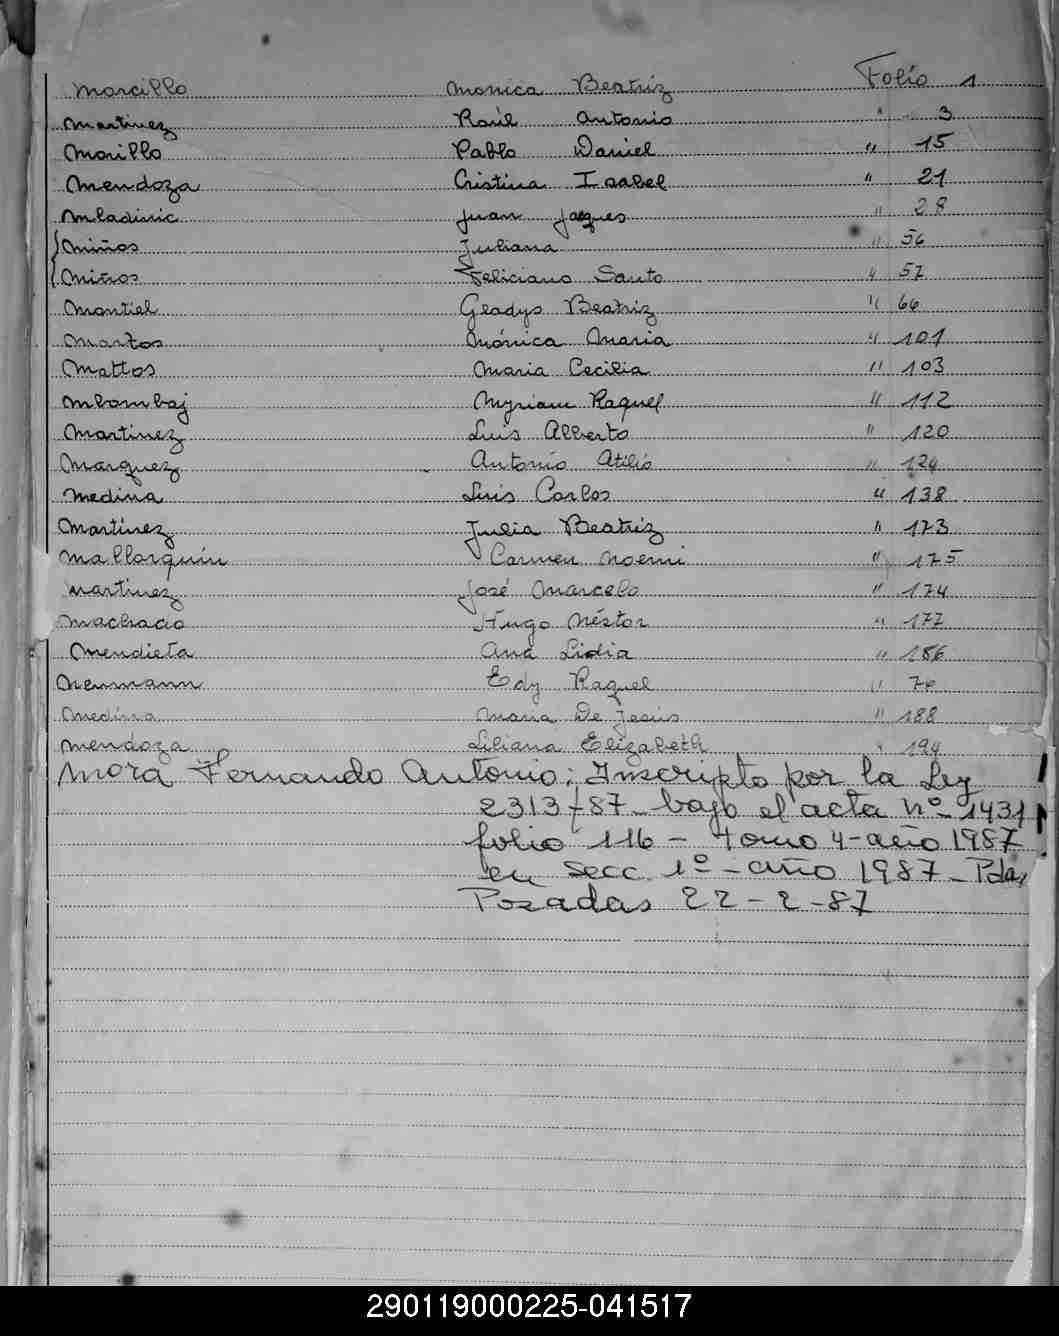 Morcillo Monica Beatriz Folio 1
Martinez Raúl Antonio " 3
Morillo Pablo Daniel " 15
Mendoza Cristina Isabel " 21
Mladinic Juan Jacques " 28
Miños Juliana " 56
Miños Feliciano Santo " 57
Montiel Gladys Beatriz " 66
Martos Mónica Maria " 101
Mattos Maria Cecilia " 103
Mbombaj Myriam Raquel " 112
Martinez Luis Alberto " 120
Márquez Antonio Atilio " 124
Medina Luis Carlos " 138
Martínez Julia Beatriz " 173
Mallorquín Carmen Noemi " 175
Martinez José Marcelo " 174
Machado Hugo Néstor " 177
Mendieta Ana Lidia " 186
Neumann Edy Raquel " 74
Medina Maria De Jesús " 188
Mendoza Liliana Elizabeth " 194
Mora Fernando Antonio; Inscripto por la Ley
2313/87- bajo el acta nº- 1431
folio 116 - Tomo 4- año 1987
en Secc 1º - año 1987 - Pdas,
Posadas 22-2-87
290119000225-041517